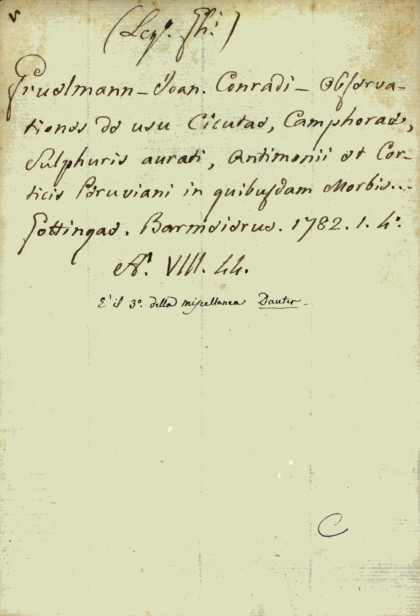 (Leg.º Ghi)
Gruelmann - Joan. Conradi - Observa-
tiones de usu Cicutae, Camphorae,
Sulphuris aurati, Antimonii et Cor-
ticis Peruviani in quibusdam Morbis...
Gottingae. Barmeierus. 1782. 1. 4º.
VIII. 44.
È il 3º. della miscellanea Dauter.
C